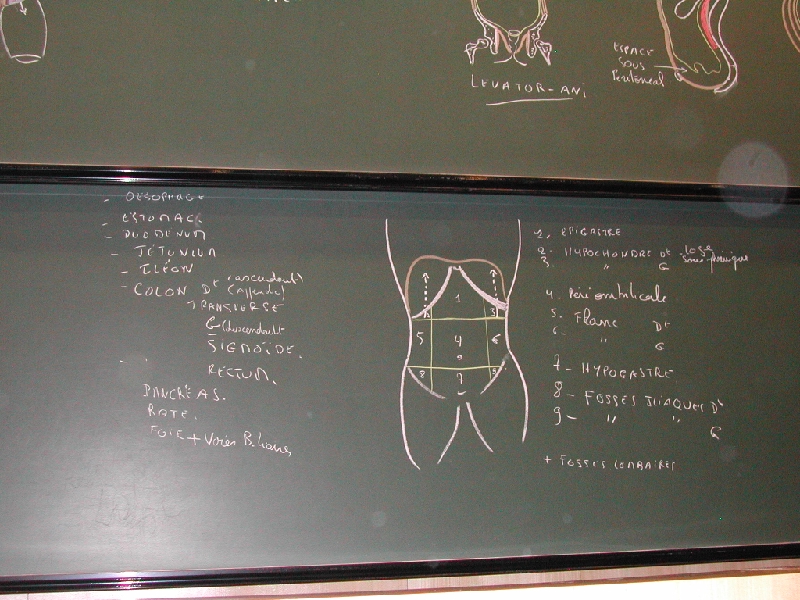 LEVATOR-ANI
ESPACE
SOUS
Péritonéal
- OESOPHAGE
- ESTOMAC
- DUODENUM
- JÉJUNUM
- ILÉON
- COLON Dt (ascendant)
TRANSVERSE
G (descendant)
SIGMOÏDE.
RECTUM.
PANCRÉAS.
RATE.
FOIE + Voies Biliaires
1
2
3
5
4
6
8
7
9
1. EPIGASTRE
2. HYPOCHONDRE Dt loge
3. " G
4. Périombilicale
5. Flanc Dt
6. " G
7 - HYPOGASTRE
8 - FOSSES ILIAQUES Dt
9 - " G
+ FOSSES LOMBAIRES